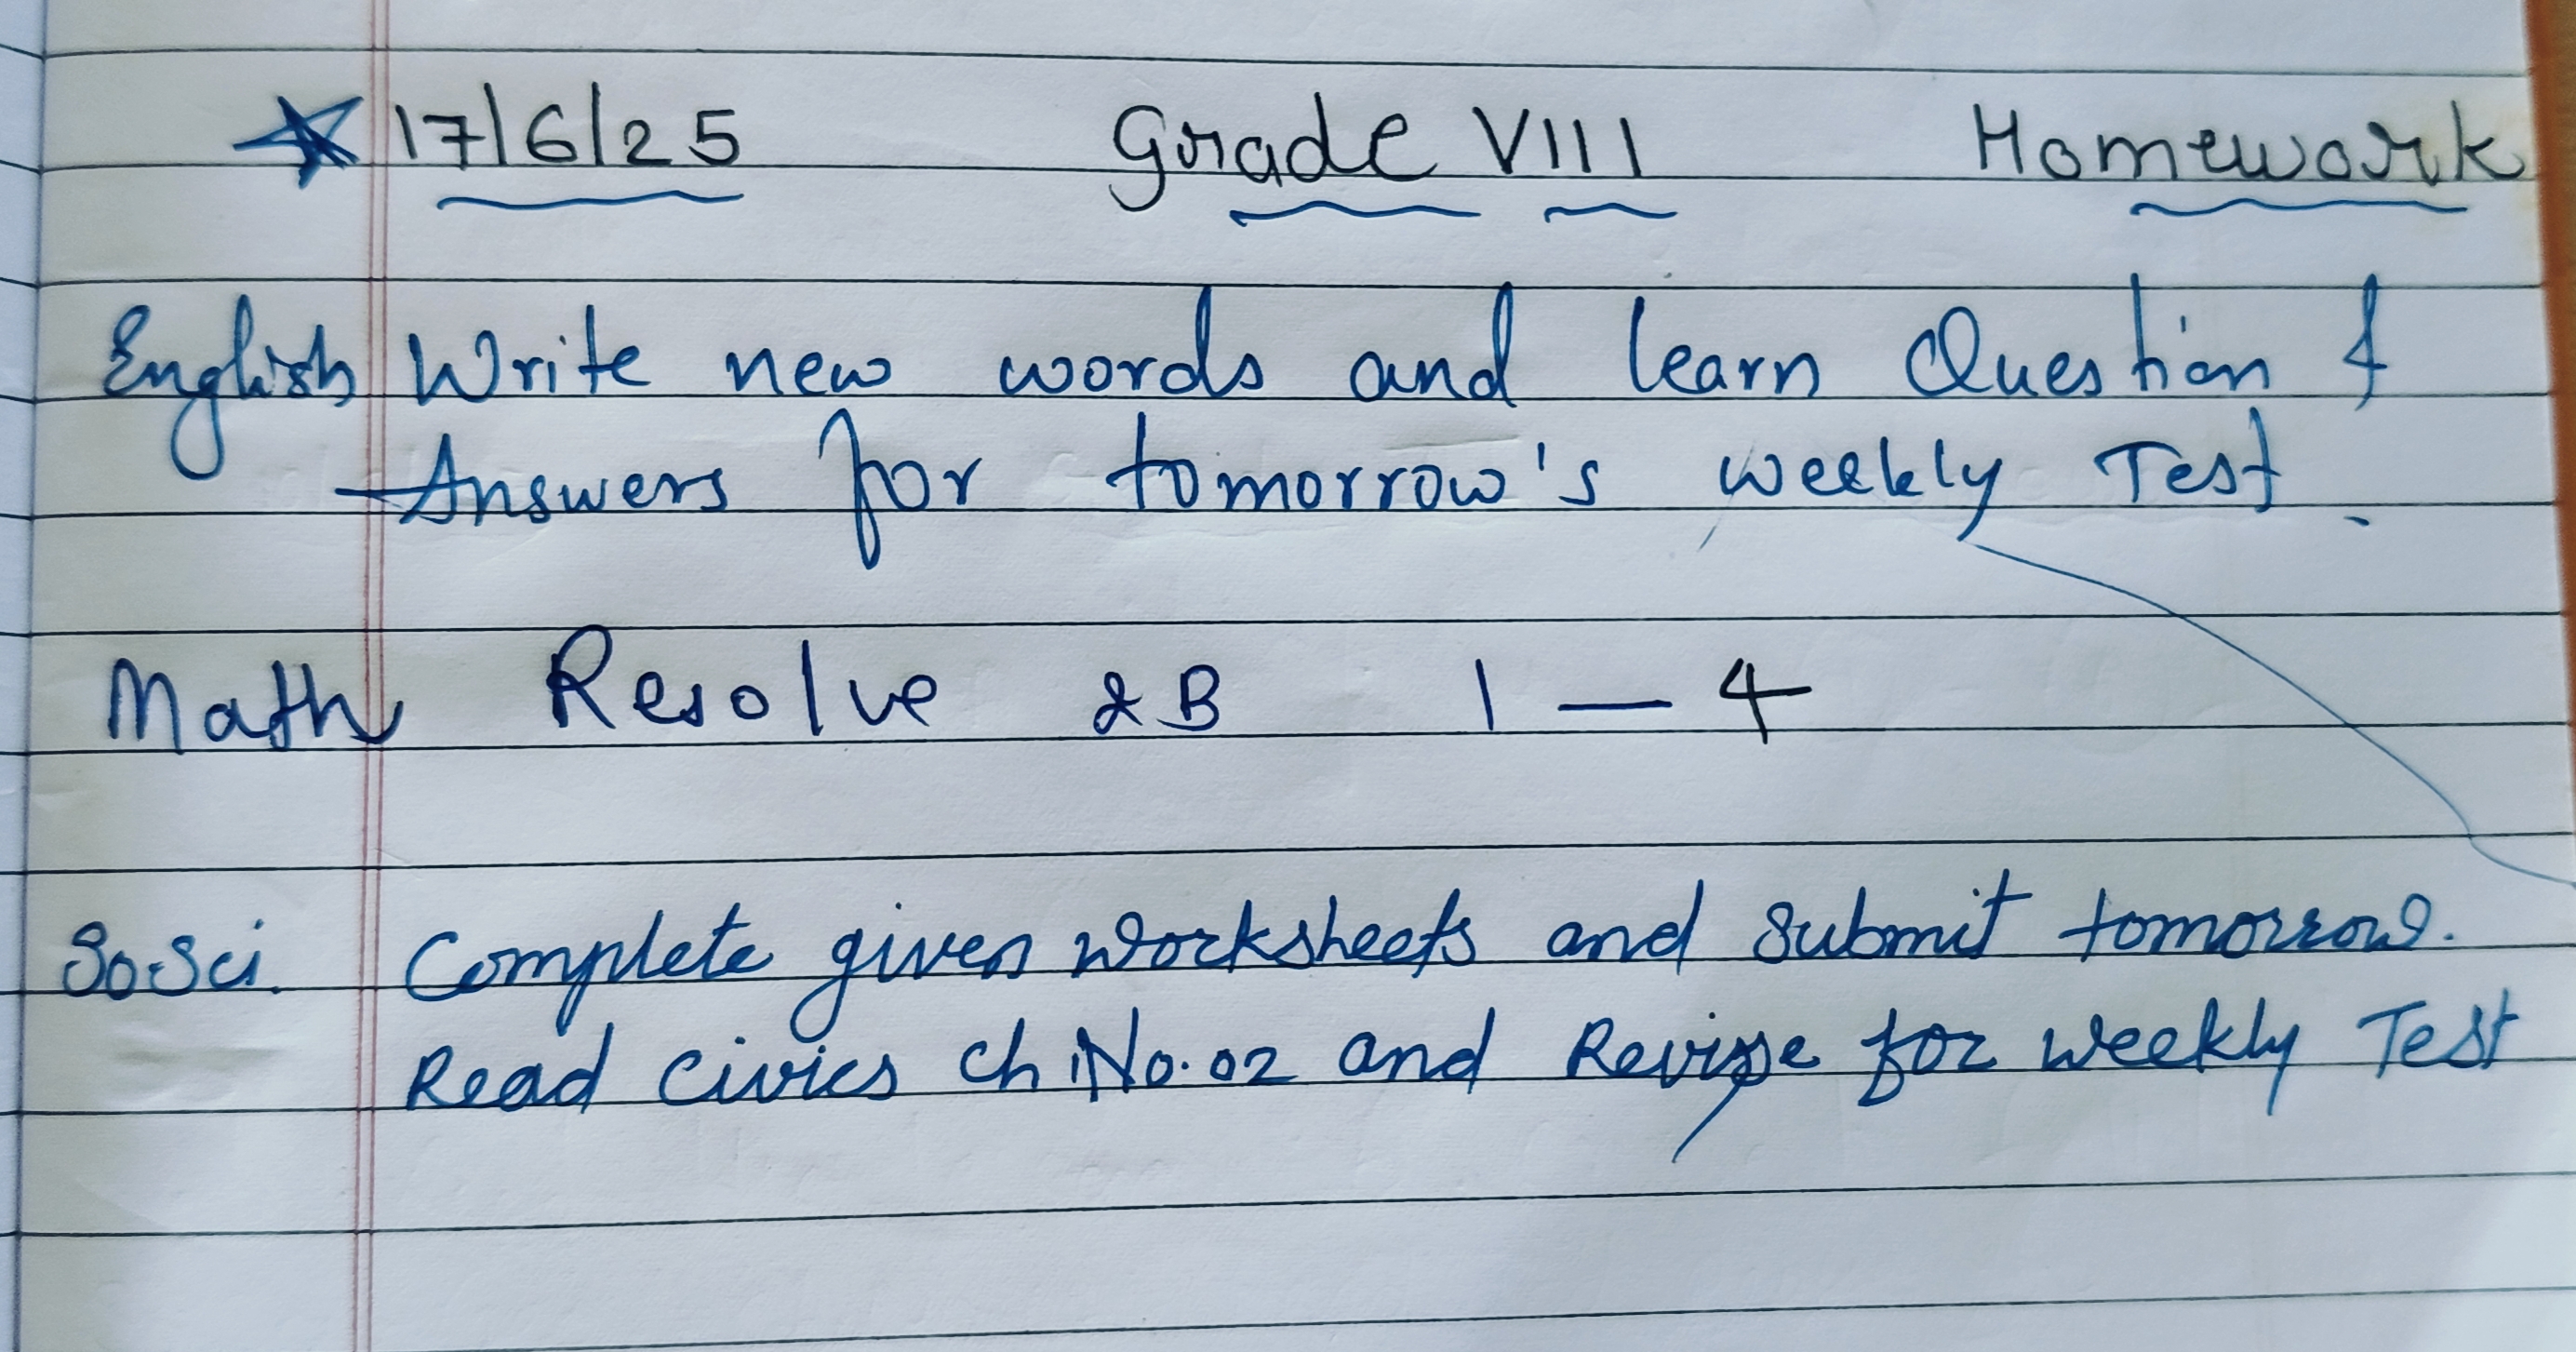 17/6/25 Grade VIII Homework
English Write new words and learn Question &
Answers for tomorrow's weekly Test.
Math Resolve 2B 1 — 4
So Sci. Complete given worksheets and submit tomorrow.
Read civics ch No. 02 and Revise for weekly Test